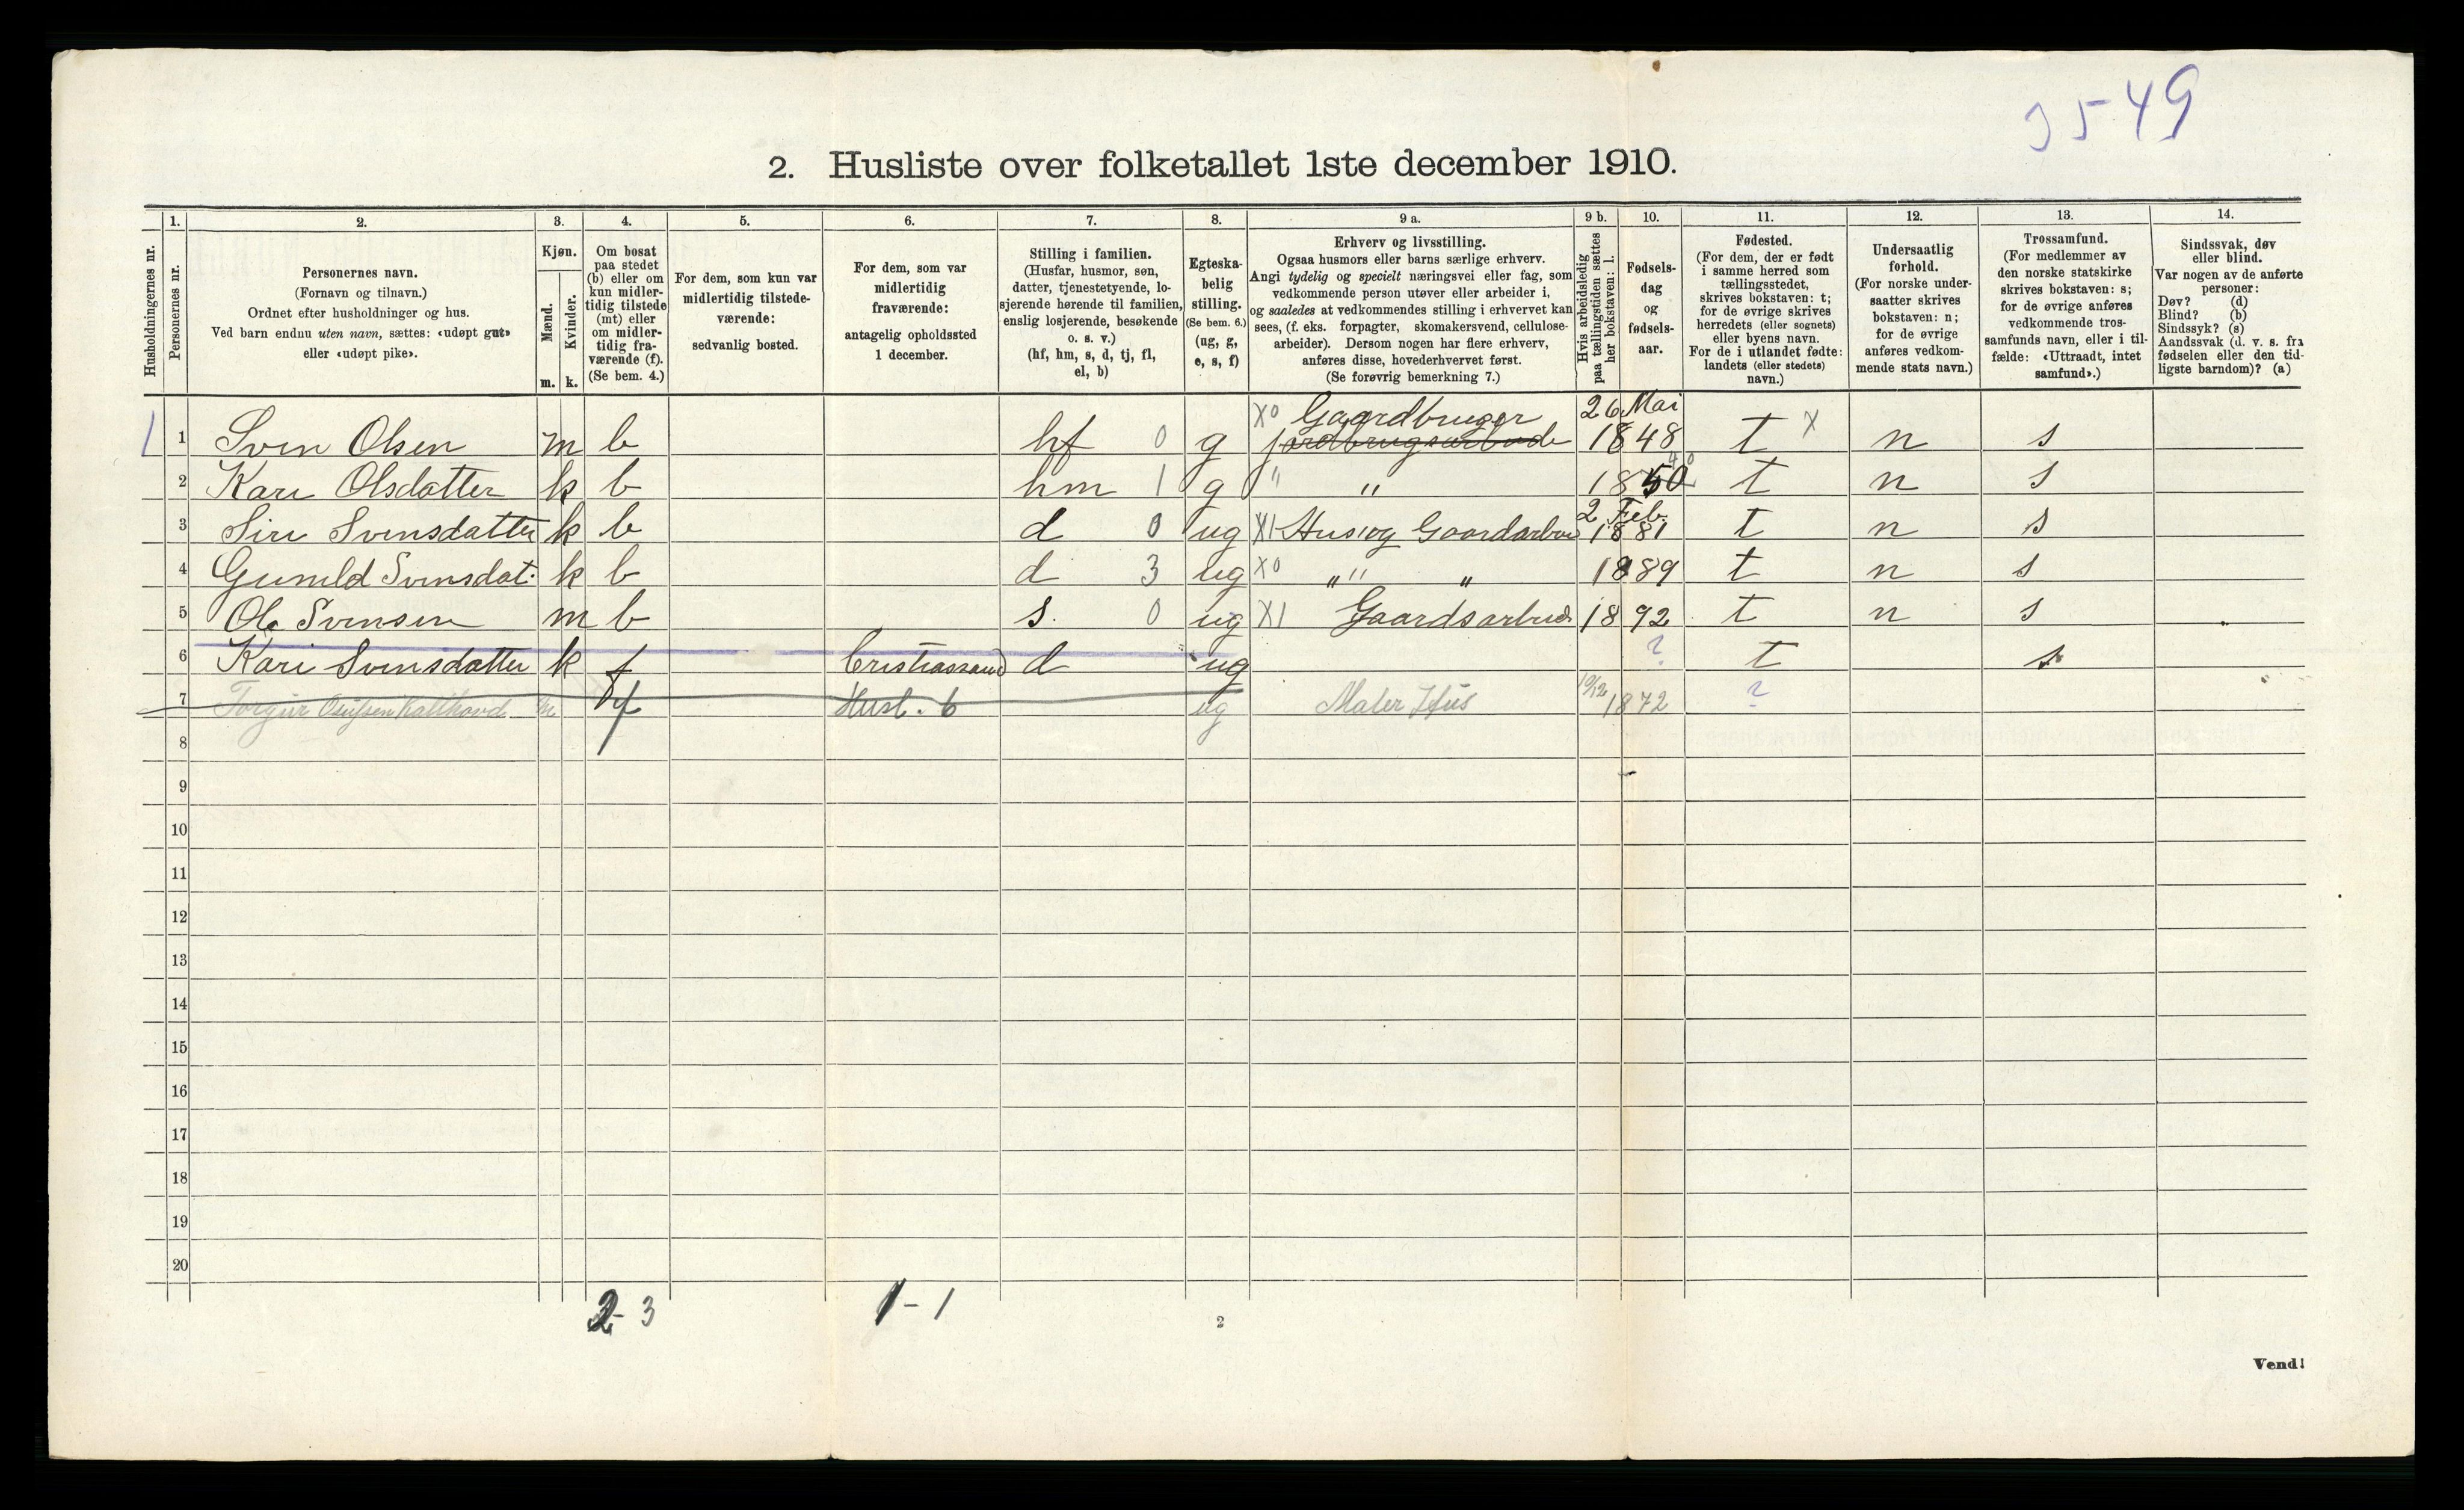 3549
2. Husliste over folketallet 1ste december 1910.
Husholdningernes nr.
1.
Personernes nr.
2.
Personernes navn.
(Fornavn og tilnavn.)
Ordnet efter husholdninger og hus.
Ved barn endnu uten navn, sættes: «udøpt gut»
eller «udøpt pike».
3.
Kjøn.
Mænd.
Kvinder.
m. k.
4.
Om bosat
paa stedet
(b) eller om
kun midler-
tidig tilstede
(mt) eller
om midler-
tidig fra-
værende (f).
(Se bem. 4.)
5.
For dem, som kun var
midlertidig tilstede-
værende:
sedvanlig bosted.
6.
For dem, som var
midlertidig
fraværende:
antagelig opholdssted
1 december.
7.
Stilling i familien.
(Husfar, husmor, søn,
datter, tjenestetyende, lo-
sjerende hørende til familien,
enslig losjerende, besøkende
o. s. v.)
(hf, hm, s, d, tj, fl,
el, b)
8.
Egteska-
belig
stilling.
(Se bem. 6.)
(ug, g,
e, s, f)
9 a.
Erhverv og livsstilling.
Ogsaa husmors eller barns særlige erhverv.
Angi tydelig og specielt næringsvei eller fag, som
vedkommende person utøver eller arbeider i,
og saaledes at vedkommendes stilling i erhvervet kan
sees, (f. eks. forpagter, skomakersvend, cellulose-
arbeider). Dersom nogen har flere erhverv,
anføres disse, hovederhvervet først.
(Se forøvrig bemerkning 7.)
9 b.
Hvis arbeidsledig
paa tællingstiden sættes
her bokstaven: l.
10.
Fødsels-
dag
og
fødsels-
aar.
11.
Fødested.
(For dem, der er født
i samme herred som
tællingsstedet,
skrives bokstaven: t;
for de øvrige skrives
herredets (eller sognets)
eller byens navn.
For de i utlandet fødte:
landets (eller stedets)
navn.)
12.
Undersaatlig
forhold.
(For norske under-
saatter skrives
bokstaven: n;
for de øvrige
anføres vedkom-
mende stats navn.)
13.
Trossamfund.
(For medlemmer av
den norske statskirke
skrives bokstaven: s;
for de øvrige anføres
vedkommende tros-
samfunds navn, eller i til-
fælde: «Uttraadt, intet
samfund».)
14.
Sindssvak, døv
eller blind.
Var nogen av de anførte
personer:
Døv? (d)
Blind? (b)
Sindssyk? (s)
Aandssvak (d. v. s. fra
fødselen eller den tid-
ligste barndom)? (a)
1 1 Sven Olsen m b hf 0 g X0 Gaardbruger jordbrugsarbeide 26 Mai 1848 t X n s
2 Kari Olsdatter k b hm 1 g " " 1850 40 t n s
3 Siri Svensdatter k b d 0 ug X1 Hus og Gaardarbei 2 Feb. 1881 t n s
4 Gunild Svensdat. k b d 3 ug X0 " " " 1889 t n s
5 Ole Svensen m b s. 0 ug X1 Gaardsarbeid 1892 t n s
6 Kari Svensdatter k f Cristiassand d ug ? t s
7 Torgjur m f Husl. 6 ug Maler Hus 10/12 1872 ?
8
9
10
11
12
13
14
15
16
17
18
19
20
2-3 1-1
2
Vend!